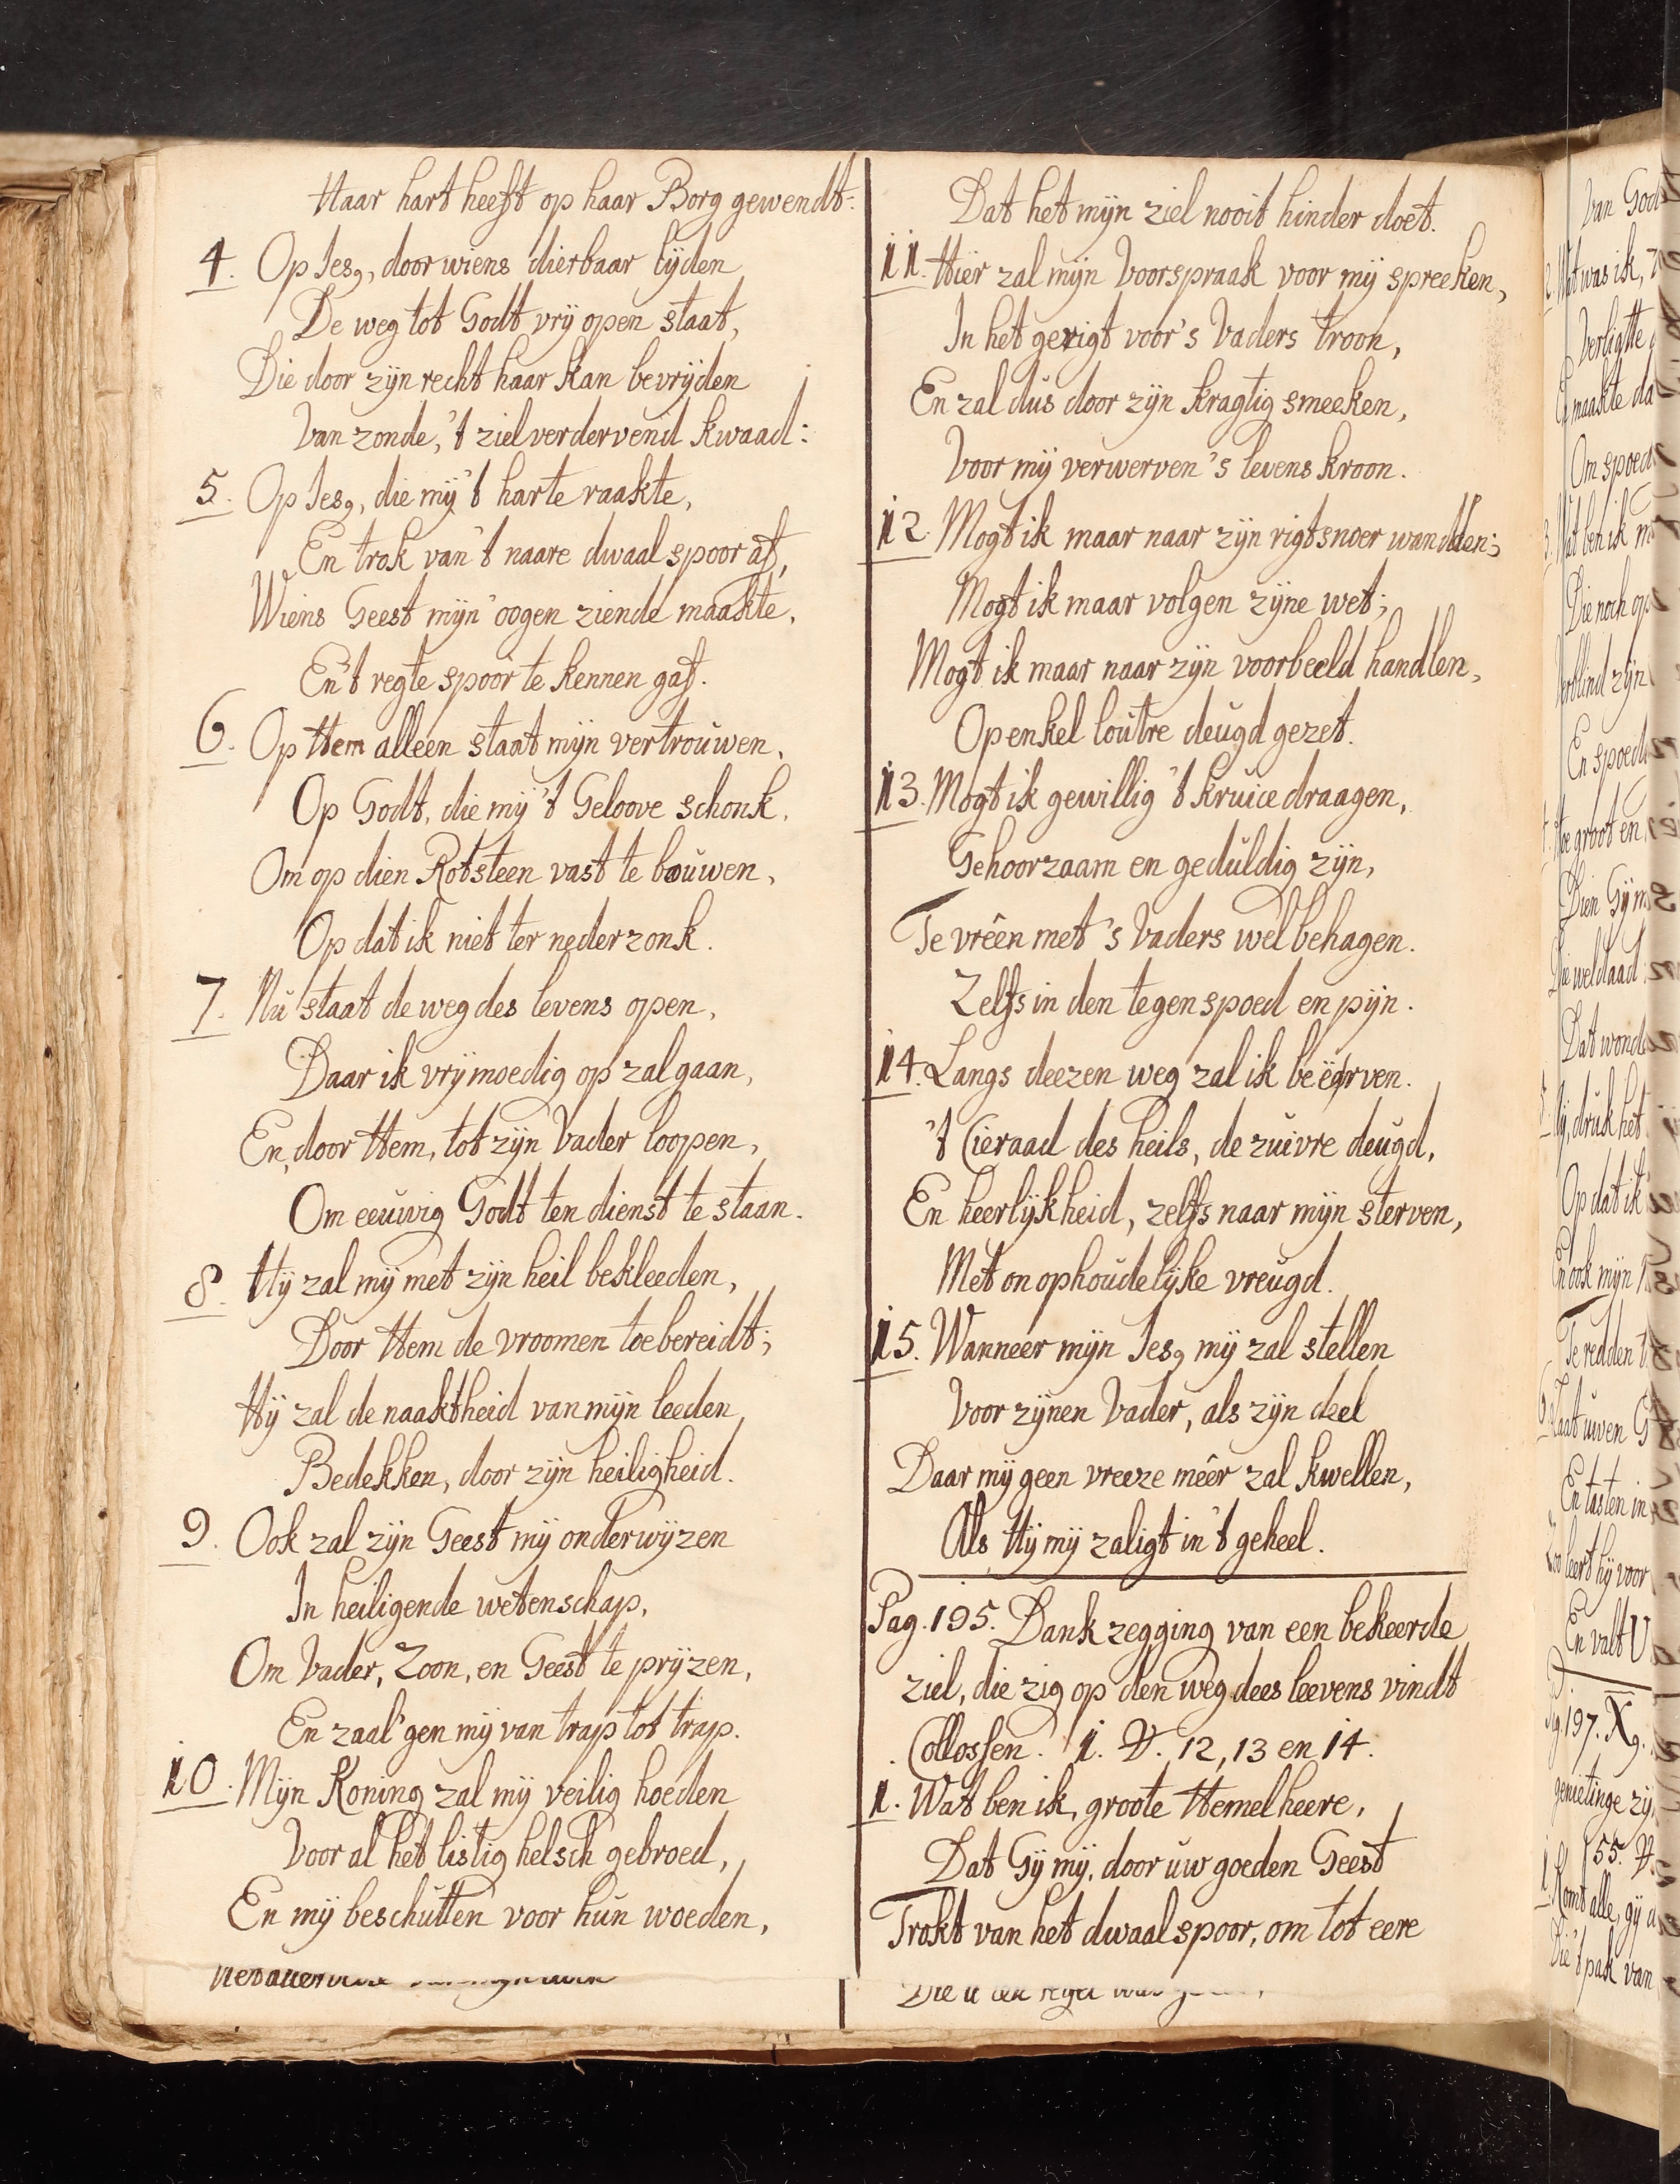 Haar hart heeft op haar Borg gewendt:
4. Op Jesꝯ, door wiens dierbaar lÿden
De weg tot Godt vrÿ open staat,
Die door zÿn recht haar kan bevrÿden
Van zonde, 't zielverdervend kwaad:
5. Op Jesꝯ, die mÿ 't harte raakte,
En trok van 't naare dwaalspoor af,
Wiens Geest mÿn oogen ziende maakte,
En 't regte spoor te kennen gaf.
6. Op Hem alleen staat mÿn vertrouwen,
Op Godt, die mÿ 't Geloove schonk,
Om op dien Rotsteen vast te bouwen,
Op dat ik niet ter neder zonk.
7. Nu staat de weg des levens open,
Daar ik vrÿmoedig op zal gaan,
En, door Hem, tot zÿn Vader loopen,
Om eeuwig Godt ten dienst te staan.
8. Hÿ zal mÿ met zÿn heil bekleeden,
Door Hem de vroomen toebereidt;
Hÿ zal de naaktheid van mÿn leeden
Bedekken, door zÿn heiligheid.
9. Ook zal zÿn Geest mÿ onderwÿzen
In heiligende wetenschap,
Om Vader, Zoon, en Geest te prÿzen,
En zaal'gen mÿ van trap tot trap.
10. Mÿn Koning zal mÿ veilig hoeden
Voor al het listig helsch gebroed,
En mÿ beschutten voor hun woeden,
Dat het mÿn ziel nooit hinder doet.
11. Hier zal mÿn Voorspraak voor mÿ spreeken,
In het gerigt voor 's Vaders troon,
En zal dus door zÿn kragtig smeeken,
Voor mÿ verwerven 's levens kroon.
12. Mogt ik maar naar zÿn rigtsnoer wandlen;
Mogt ik maar volgen zÿne wet;
Mogt ik maar naar zÿn voorbeeld handlen,
Op enkel loutre deugd gezet.
13. Mogt ik gewillig 't kruice draagen,
Gehoorzaam en geduldig zÿn,
Te vrêen met 's Vaders welbehagen.
Zelfs in den tegenspoed en pÿn.
14. Langs deezen weg zal ik beërven.
't Cieraad des heils, de zuivre deugd,
En heerlÿkheid, zelfs naar mÿn sterven,
Met onophoudelÿke vreugd.
15. Wanneer mÿn Jesꝯ mÿ zal stellen
Voor zÿnen Vader, als zÿn deel
Daar mÿ geen vreeze mêer zal kwellen,
Als Hÿ mÿ zaligt in 't geheel.
Pag. 195. Dankzegging van een bekeerde
ziel, die zig op den weg dees leevens vindt
Collossen. 1. V. 12, 13 en 14.
1. Wat ben ik, groote Hemelheere,
Dat Gÿ mÿ, door uw goeden Geest
Trokt van het dwaalspoor, om tot eere
Van God
Wat was ik,
Verligtte
maakte da
Om spoed
Wat ben ik
Die noch op
Verblind zÿn
En spoed
Hoe groot en
Dien Gÿ
Die weldaad
Dat wond
druk het
Op dat ik
En ook mÿn
Te redden
Laat uwen G
En tasten in
Zoo leert hÿ voor
En valt U
197. Xꝯ.
genietinge
55. V.
1. Komt alle, gÿ
Die 't pak van